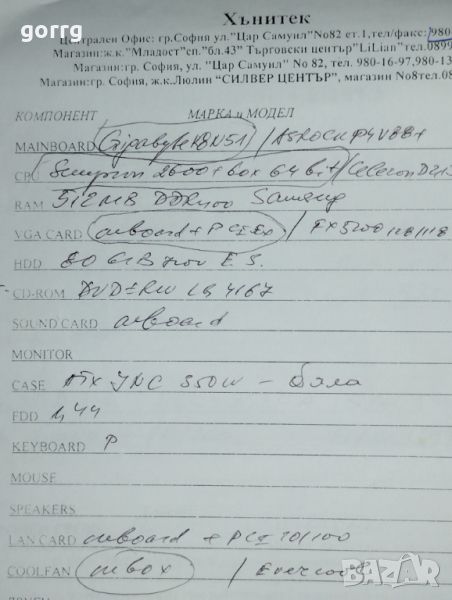 gorrg
Хънитек
Централен Офис: гр.София ул."Цар Самуил"No82 ет.1,тел/факс:980
Магазин:ж.к."Младост"сп."бл.43" Търговски център"LiLian"тел.0899
Магазин:гр.София, ул. "Цар Самуил" No 82, тел. 980-16-97,980-13
Магазин:гр. София, ж.к.Люлин "СИЛВЕР ЦЕНТЪР", магазин No8тел.08
КОМПОНЕНТ МАРКА и МОДЕЛ
MAINBOARD Gigabyte K8N51 / ASROCK P4V88+
CPU Sempron 2600+ box 64 bit / Celeron D
RAM 512 MB DDR400 Samsung
VGA CARD onboard + PCI Ex / FX5200 128
HDD 80 GB 7200 E.S.
CD-ROM DVD±RW LG 4167
SOUND CARD onboard
MONITOR
CASE ATX JNC 350W - бяла
FDD 1,44
KEYBOARD P
MOUSE
SPEAKERS
LAN CARD onboard + PCI 10/100
COOLFAN inbox / Evercool
BAZAR